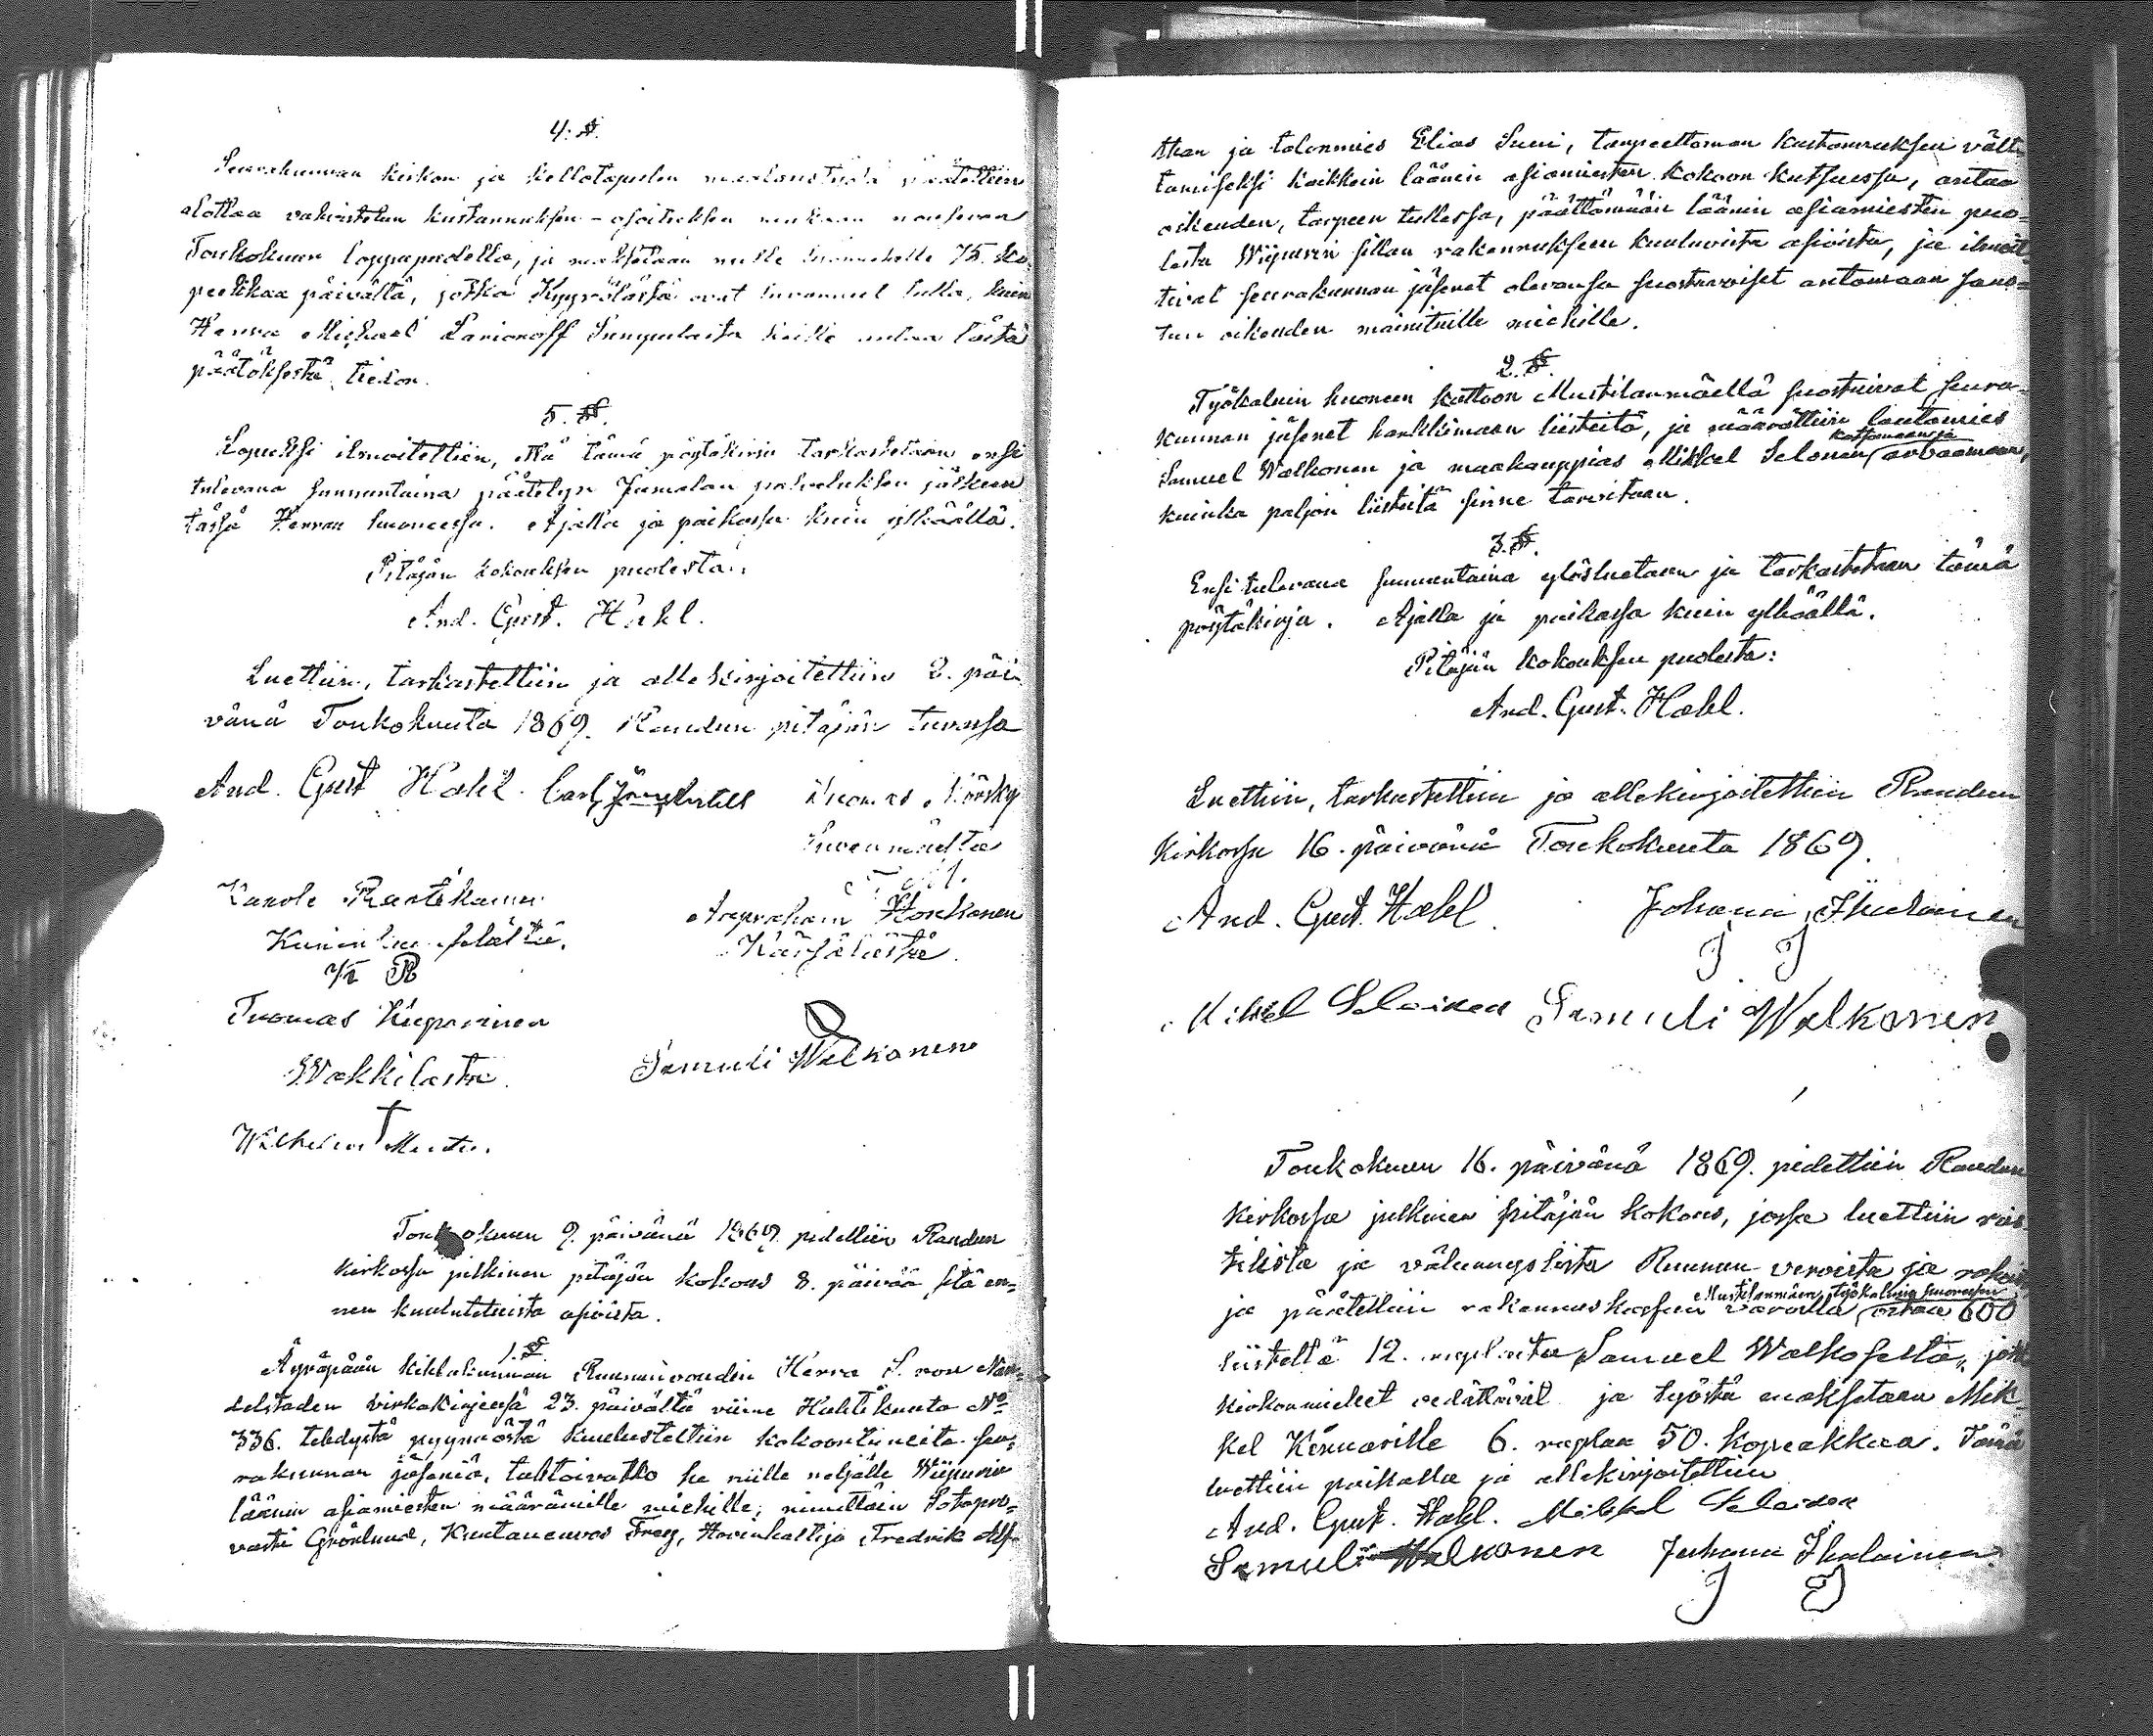 4. §.
Seurakunnan kirkon ja kellotapulin maalaustyötä päätettiin
alottaa vahvistetun kustannuksen-osoituksen mukaan
Toukokuun loppupuolella, ja maksetaan niille 75. ko-
peekkaa päivältä, jotka Kyyrölässä ovat luvanneet tulla, kuin
Herra Michael Larionoff Sumpulasta heille antaa tästä
päätöksestä tiedon.
5. §.
Lopuksi ilmoitettiin, että tämä pöytäkirja tarkastetaan ensi
tulevana sunnuntaina päätetyn Jumalan palveluksen jälkeen
tässä Herran huoneessa. Ajalla ja paikassa kuin ylhäällä.
Pitäjän kokouksen puolesta:
And. Gust. Hahl.
Luettiin, tarkastettiin ja allekirjoitettiin 2. päi-
vänä Toukokuuta 1869. Raudun pitäjän tuvassa
And. Gust Hahl. Carl Tuomas
Paavo Raatikainen Aapraham Honkanen
R
Tuomas Kiiparinen
Wakkilasta. Samuli Walkonen
Wilhelm
Toukokuun 9. päivänä 1869. pidettiin Raudun
kirkossa julkinen pitäjän kokous 8. päivää sitä en-
nen kuulutetuista asioista.
1. §
Äyräpään kihlakunnan Ruununvoudin Herra S. von Nan-
delstaden virkakirjeessä 23. päivältä viime Huhtikuuta No
336. tehdystä pyynnöstä kuulusteltiin kokoontuneita seu-
rakunnan jäseniä, tahtoivatko he niille neljälle Wiipurin
läänin asiamiesten määräämille miehille, nimittäin Sotapro-
vasti Grönlund, Kauppaneuvos Frey, Hovinhaltija Fredrik Alf-
than ja talonmies Elias Suni, tarpeettoman kustannuksen vält-
tämiseksi kaikkein läänin asiamiesten kokoon kutsuessa, antaa
oikeuden, tarpeen tullessa, päättämään läänin asiamiesten puo-
lesta Wiipurin sillan rakennukseen kuuluvista asioista, ja ilmoit-
tivat seurakunnan jäsenet olevansa suostuvaiset antamaan sano-
tun oikeuden mainituille miehille.
2. §.
Työkaluin huoneen kattoon Mustilanmäellä suostuivat seura-
kunnan jäsenet hankkimaan liisteitä, ja määrättiin lautamies
Samuel Walkonen ja maakauppias Mikkel Selonen katsomaan ja arvaamaan,
kuinka paljon liisteitä sinne tarvitaan.
3. §.
Ensi tulevana sunnuntaina ylösluetaan ja tarkastetaan tämä
pöytäkirja. Ajalla ja paikassa kuin ylhäällä.
Pitäjän kokouksen puolesta:
And. Gust. Hahl.
Luettiin, tarkastettiin ja allekirjoitettiin Raudun
kirkossa 16. päivänä Toukokuuta 1869.
And. Gust. Hahl. Johana Ikalainen
J J
Mikkel Seloinen Samuli Walkonen
Toukokuun 16. päivänä 1869. pidettiin Raudun
kirkossa julkinen pitäjän kokous, jossa luettiin
ja Ruunun veroista ja
ja päätettiin rakennuskassan varoilla Mustilanmäen työkaluin huoneesen ostaa 600
liistettä 12. ruplasta Samuel Walkoselta, jotka
kirkonmiehet vedättävät ja työstä maksetaan Mik-
kel Kinnarille 6. ruplaa 50. kopeekkaa. Tämä
luettiin paikalla ja allekirjoitettiin
And. Gust. Hahl. Mikkel Seloinen
Samuli Walkonen Juhana Ikalainen
J J